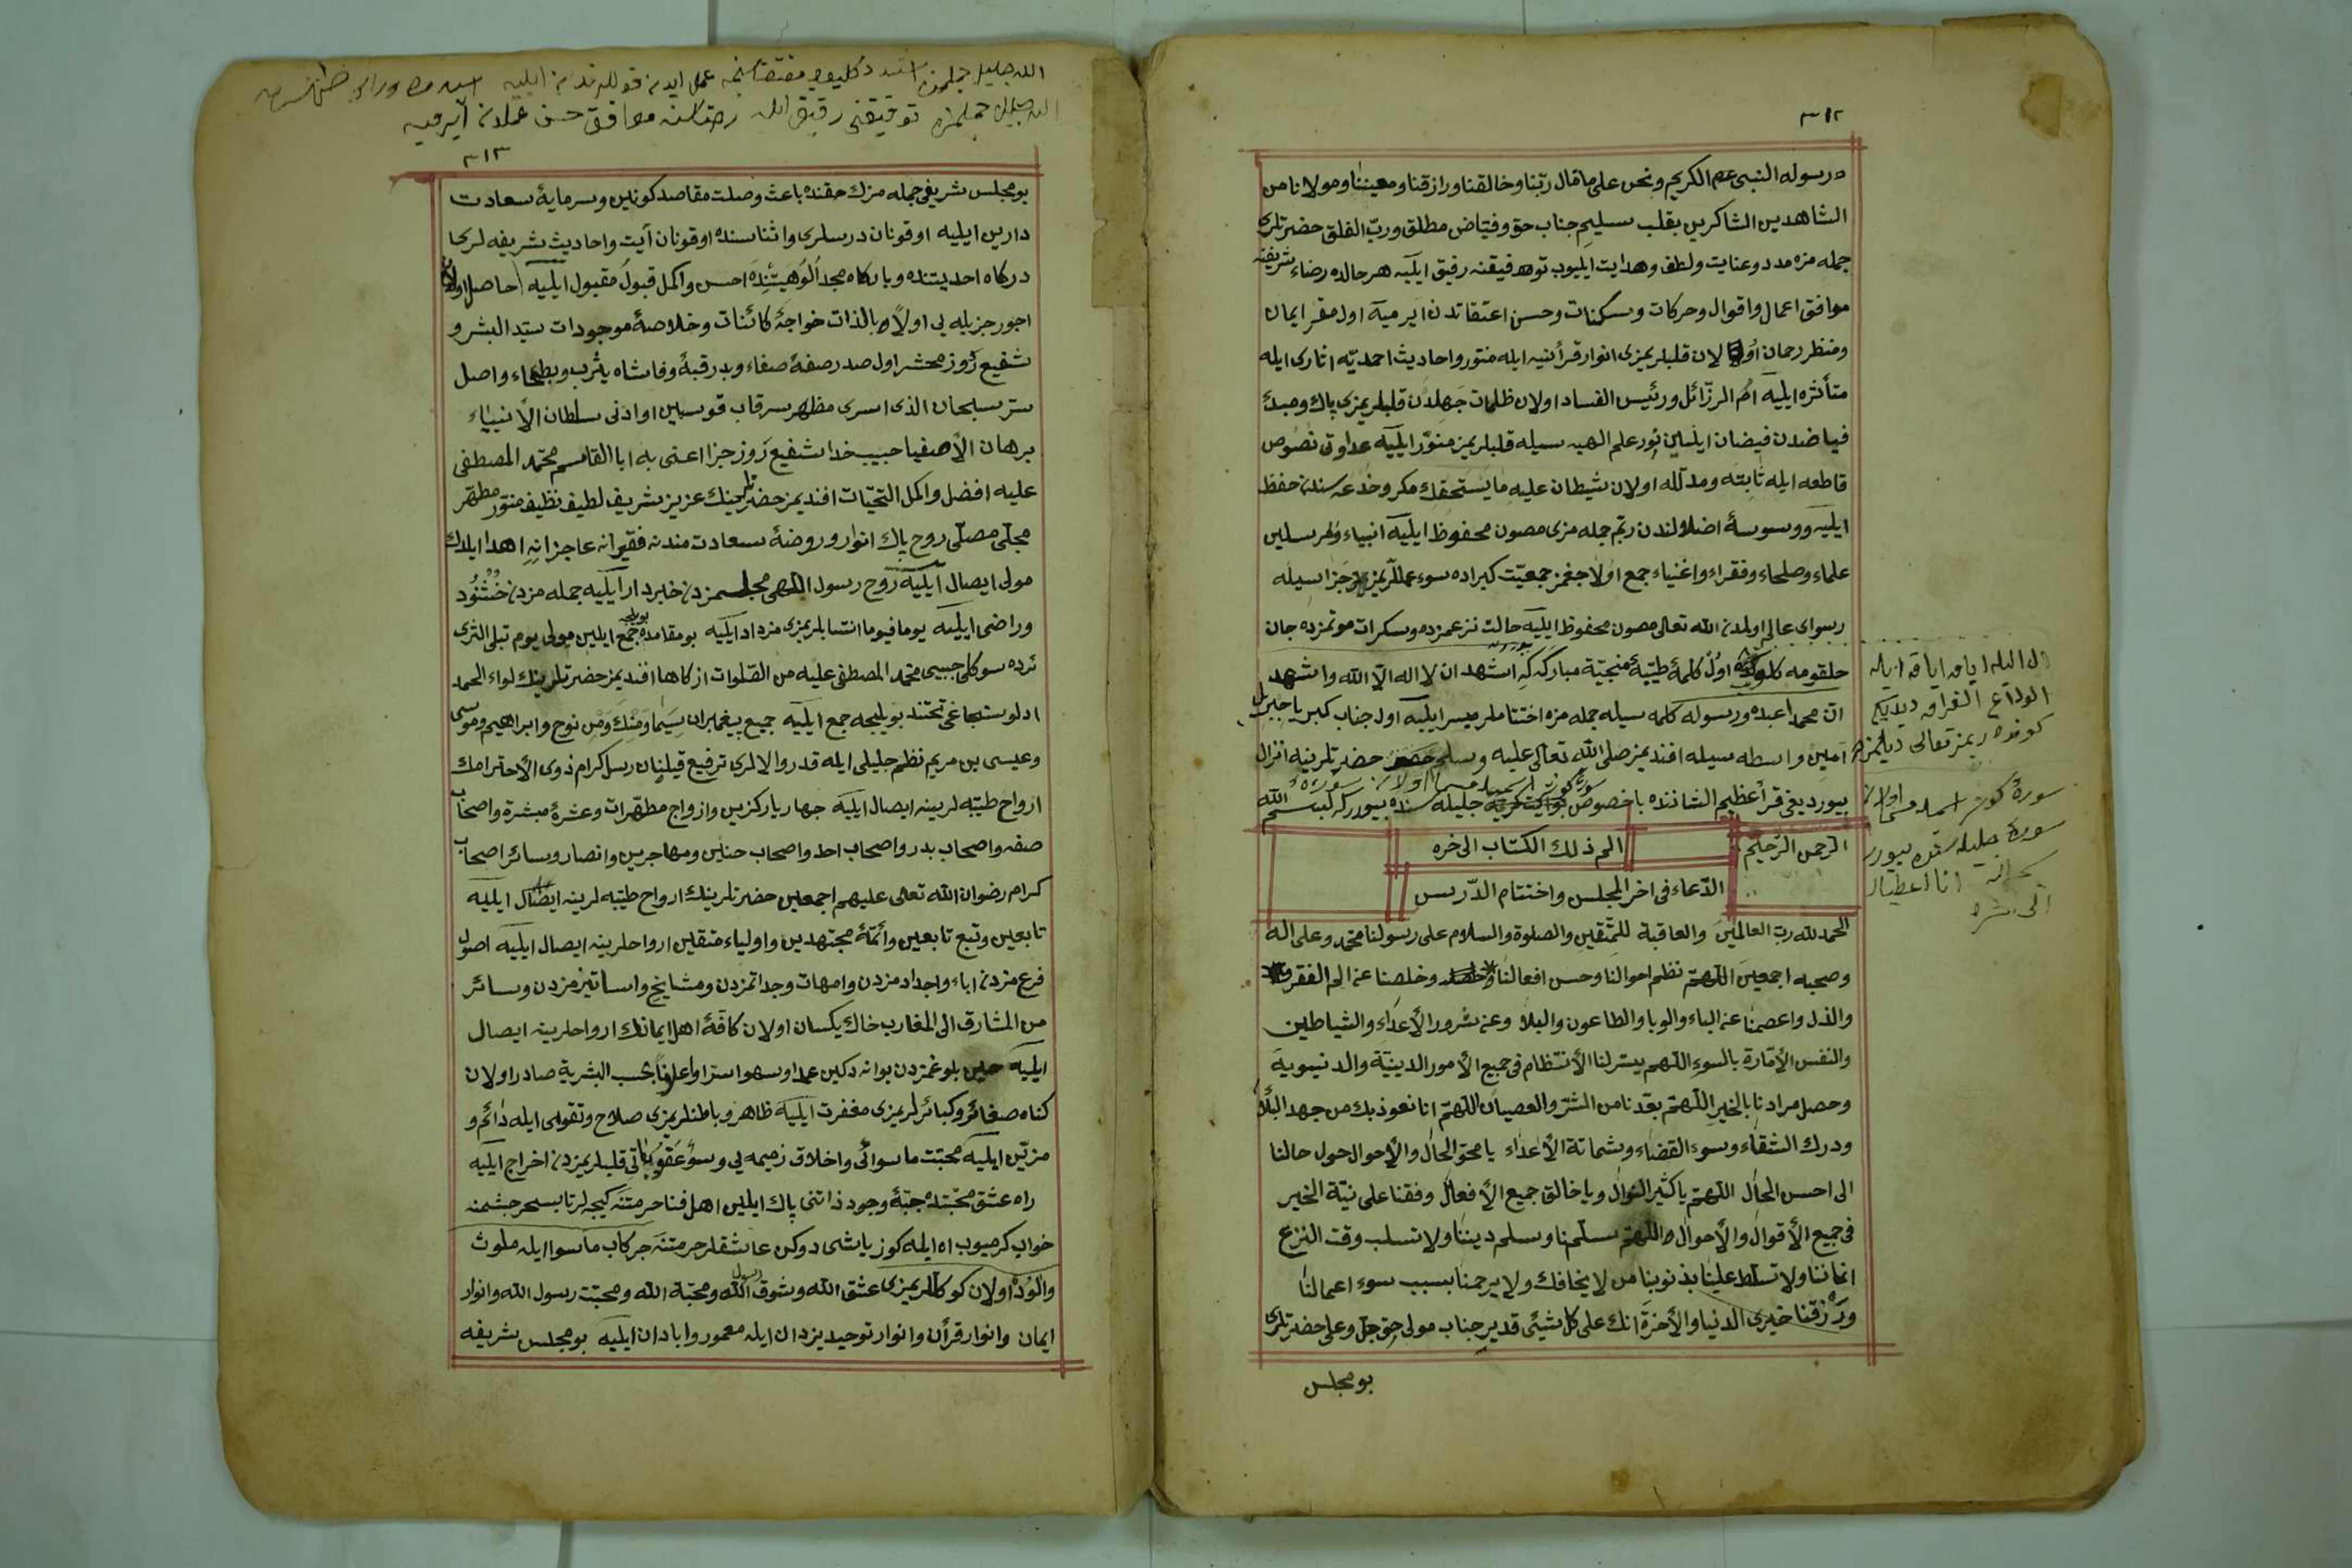 ٣١٢
ورسوله النبی عم الكریم ونحن علی ما قال ربّنا وخالقنا ورازقنا ومعیننا ومولانا من
الشاهدین الشاكرین بقلب سلیم جناب حق وفیّاض مطلق وربّ الفلق حضرتلری
جمله مزه مدد وعنایت ولطف وهدایت ایلیوب توفیقنه رفیق ایلیه هر حالده رضاء شریفنه
موافق اعمال واقوال وحركات وسكنات وحسن اعتقاتدن آیرمیه اول مقر ایمان
ومنظر رحمان اولان قلبلریمزی انوار قرأنیه ایله منتور واحادیث احمدیّه اثاری ایله
متأثره ایلیه امّ الرزّائل ورئیس الفساد اولان ظلمات جهلدن قلبلریمزی پاك ومبدأ
فیاضدن فیضان ایلین نور علم الهیه سیله قلبلریمز منوّر ایلیه عداوتی نصوص
قاطعه ایله ثابته ومدلّله اولان شیطان علیه ما یستحقك مكر وخدعه سندن حفظ
ایلیه ووسوسۀ اضلالندن ربّم جمله مزی مصون محفوظ ایلیه انبیاء ومرسلین
علماء وصلحاء وفقراء واغنیاء جمع اولاجغمز جمعیّت كبراده سوء عمللریمزك جزاسیله
رسوای عالم اولمدن الله تعالی مصون محفوظ ایلیه حالت نزعمزده وسكرات موتمزده جان
حلقومه كلدكده اول كلمۀ طیّبۀ منجیّۀ مباركه كه اشهد ان لا اله الّا الله واشهد
انّ محمدا عبده ورسوله كلمه سیله جمله مزه اختتاملر میسر ایلیه اول جناب كبریا جبریل
آمین واسطه سیله افندیمز صلی الله تعالی علیه وسلم حضرتلرینه انزال
بیوردیغی قرأن عظیم الشاننده با خصوص جلیله سنده بیوررکه بسم الله
الرّحمن الرّحیم
الم ذلك الكتاب الی اخره
الدّعاء فی اخر المجلس واختتام الدّریس
الحمد لله ربّ العالمین والعاقبة للمتّقین والصلوة والسلام علی رسولنا محمّد وعلی اله
وصحبه اجمعین اللهمّ نظم احوالنا وحسن افعالنا وخلصنا عن الم الفقر
والذل واعصمنا عن الباء والوبا والطاعون والبلا وعن شرور الأعداء والشیاطین
والنفس الأمّارة بالسوء اللهم یسّر لنا الأنتظام فی جمیع الأمور الدینیّة والدنیویة
وحصل مرادنا بالخیر اللهمّ بعّدنا من الشرّ والعصیان اللهمّ انا نعوذ بك من جهد البلاء
ودرك الشقاء وسوء القضاء وشماتة الأعداء یا محوّل الحال والأحوال حول حالنا
الی احسن الحال اللهمّ یا كثیر النوال ویا خالق جمیع الأفعال وفقنا علی نیّة الخیر
فی جمیع الأقوال والأحوال واللهمّ سلّمنا وسلم دیننا ولا تسلب وقت النزع
ایماننا ولا تسلّط علینا بذنوبنا من لا یخافك ولا یرحمنا بسبب سوء اعمالنا
ورزقنا خیری الدنیا والأخرة انك علی كل شیئی قدیر جناب مولی حق جلّ وعلی حضرتلری
بو مجلس
الوداع الفراق دیدیكم
سورۀ كوثر
سورۀ جلیله سنده بیورر
انا اعطینا
الی اخره
توفیقنی رفیق موافق حسن عملدن آیرمیه
٣١٣
بو مجلس شریفی جمله مزك حقنده باعث وصلت مقاصد كونین وسرمایۀ سعادت
دارین ایلیه اوقونان درسلری واثناسنده اوقونان آیت واحادیث شریفه لری
دركاه احدیتنده وباركاه مجد الوهیتنده احسن واكمل قبول مقبول ایلیه حاصل اولان
اجور جزیله یی اولًا وبالذات خواجۀ كائنات وخلاصۀ موجودات سیّد البشر و
شفیع روز محشر اول صدر صفۀ صفاء وبدر قبۀ وفا شاه یثرب وبطحاء واصل
سرّ سبحان الذی اسری مظهر سر قاب قوسین او ادنی سلطان الأنبیاء
برهان الأصفیا حبیب خدا شفیع روز جزا اعنی به ابا القاسم محمّد المصطفی
علیه افضل واكمل التحیّات افندیمز حضرتلرینك عزیز شریف لطیف نظیف منوّر مطهّر
مجلّی مصلّی روح پاك انوار وروضۀ سعادت مندنه فقیرانه عاجزانه اهدا ایلدك
مولی ایصال ایلیه روح رسول اللهی مجلسمزدن خبردار ایلیه جمله مزدن خشنود
وراضی ایلیه یوما فیوما انتسابلریمزی مزداد ایلیه بو مقامده بویله جمع ایلین مولی یوم تبلی الثری
ئرده سوكلی حبیبی محمّد المصطفی علیه من الصّلوات ازكاها افندیمز حضرتلرینك لواء الحمد
ادلو سنجاغی تحتنده بویلیجه جمع ایلیه جمیع پیغمبران سیّما ومنك ومن نوح وابراهیم وموسی
وعیسی بن مریم نظم جلیلی ایله قدر والالری ترفیع قیلنان رسل كرام ذوی الأحترامك
ارواح طیّبه لرینه ایصال ایلیه چهار یار كزین وازواج مطهّرات وعشرۀ مبشرة واصحاب
صفه واصحاب بدر واصحاب احد واصحاب حنین ومهاجرین وانصار وسائر اصحاب
كرام رضوان الله تعالی علیهم اجمعین حضرتلرینك ارواح طیّبه لرینه ایصال ایلیه
تابعین وتبع تابعین وائمّۀ مجتهدین واولیاء متقین ارواحلرینه ایصال ایلیه اصول
فرع مزدن اباء واجدادمزدن وامهات وجداتمزدن ومشایخ واساتیذمزدن وسائر
من المشارق الی المغارب خاك یكسان اولان كافّۀ اهل ایمانك ارواحلرینه ایصال
ایلیه حین بلوغمزدن بو انه دكین عمدا وسهوا سرّا واعلانا بحسب البشریة صادر اولان
كناه صغائر وكبائرلریمزی مغفرت ایلیه ظاهر وباطنلریمزی صلاح وتقوی ایله دائم و
مزیّن ایلیه محبّت ماسوائی واخلاق زمیمه یی وسوء قلبلریمزدن اخراج ایلیه
راه عشق محبّتده جبّۀ وجود ذاتنی پاك ایلین اهل فنا حرمتنه كیجه لر تا بسحر چشمنه
خواب كرمیوب اه ایله كوز یاشی دوكن عاشقلر حرمتنه چركاب ماسوا ایله ملوث
والوده اولان كوكللریمزی عشق الله وشوق رسول الله ومحبّة الله ومحبّت رسول الله وانوار
ایمان وانوار قرأن وانوار توحید یزدان ایله معمور وابادان ایلیه بو مجلس شریفه